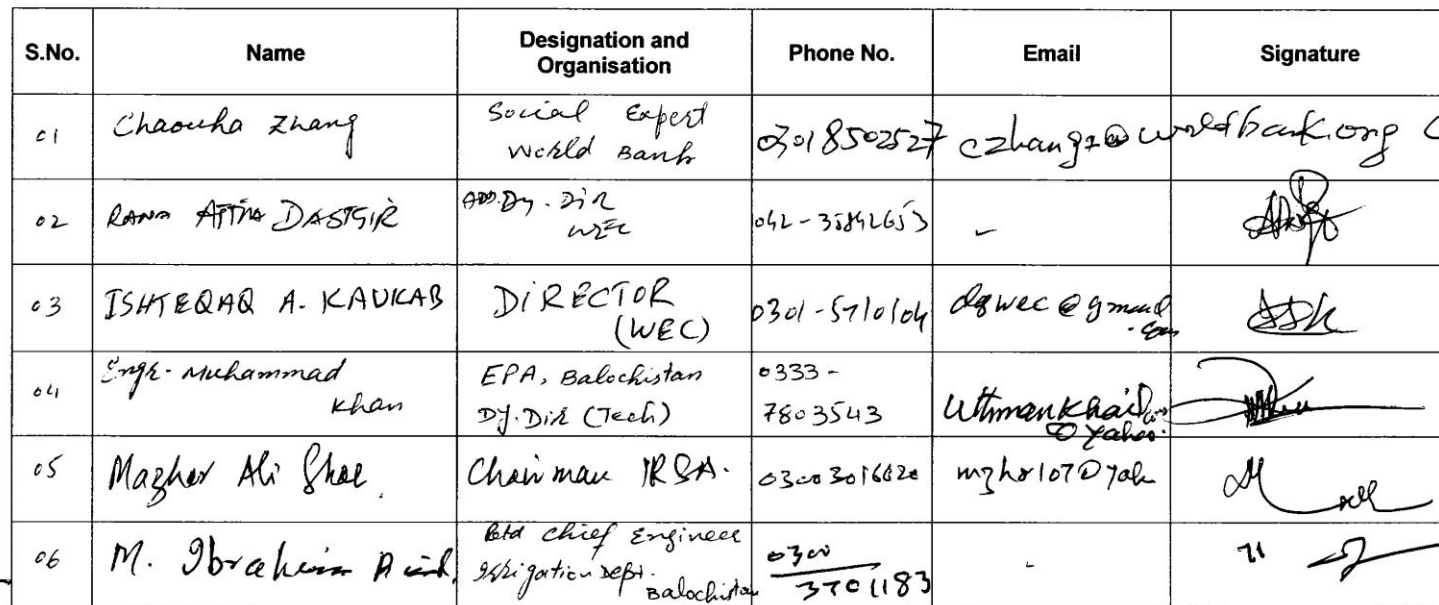 S.No. Name Designation and Organisation Phone No. Email Signature
01 Chaouha Zhang Social Expert World Bank 03018502527 czhang2@worldbank.org
02 RANA ATTIA DASTGIR ADD.Dy. Dir WEC 042-35842653 -
03 ISHTEQAQ A. KAUKAB DIRECTOR (WEC) 0301-5710104 dgwec@gmail.com
04 Engr. Muhammad Khan EPA, Balochistan Dy. Dir (Tech) 0333-7803543
05 Mazhar Ali Shah Chairman IRSA. mzhr107@yah
06 M. Ibrahim Rind. Retd Chief Engineer Irrigation Dept. Balochistan 0300 3701183 -